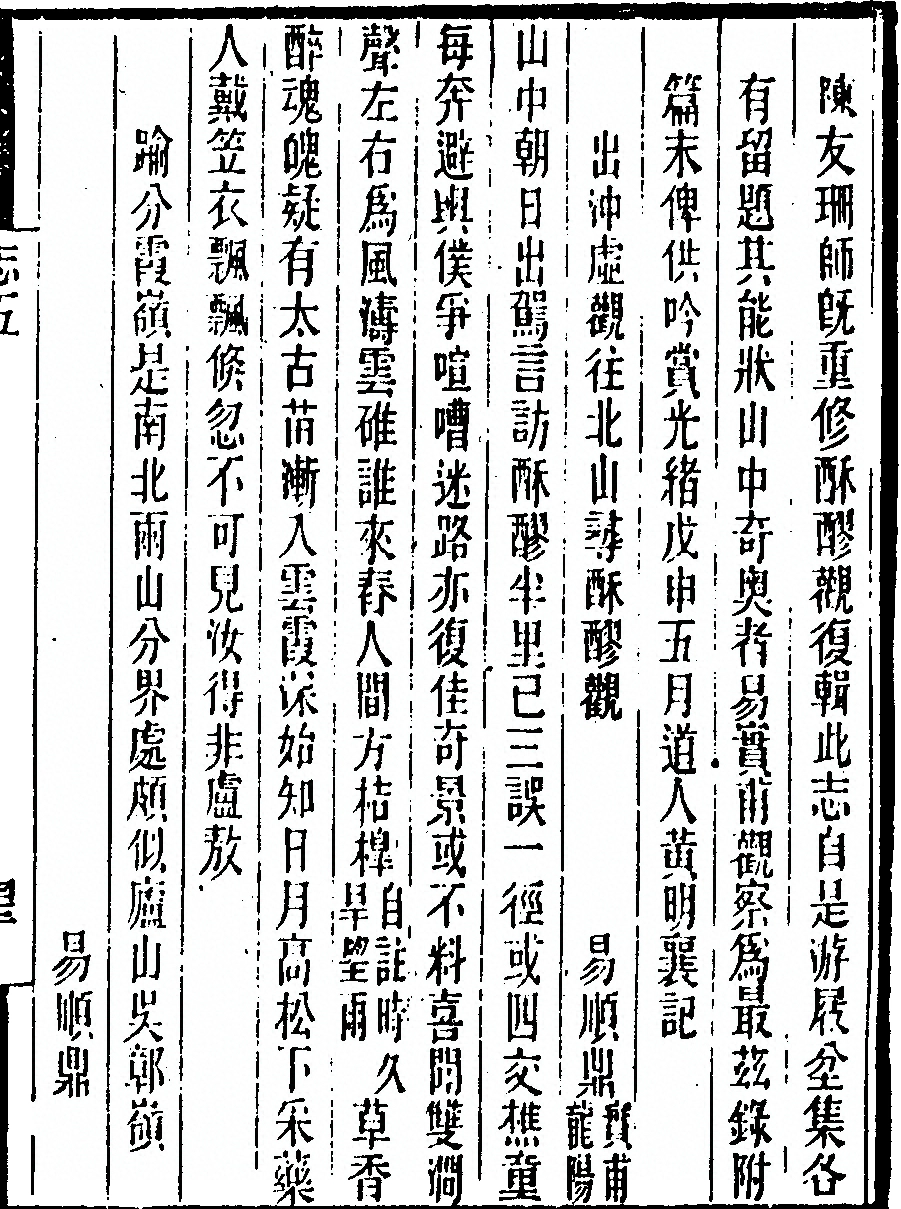 陳友珊師旣重修酥醪觀復輯此志自是游屐坌集各
有留題其能狀山中奇奧者易實甫觀察爲最茲錄附
篇末俾供吟賞光緒戊申五月道人黃明襄記
出沖虛觀往北山尋酥醪觀 易順鼎 實甫龍陽
山中朝日出駕言訪酥醪半里已三誤一徑或四交樵童
每奔避輿僕爭喧嘈迷路亦復佳奇景或不料喜聞雙澗
聲左右爲風濤雲碓誰來舂人間方桔橰自註時久旱望雨草香
醉魂魄疑有太古苗漸入雲霞深始知日月高松下采藥
人戴笠衣飄飄倏忽不可見汝得非盧敖
踰分霞嶺是南北兩山分界處頗似廬山吳鄣嶺
易順鼎
志五